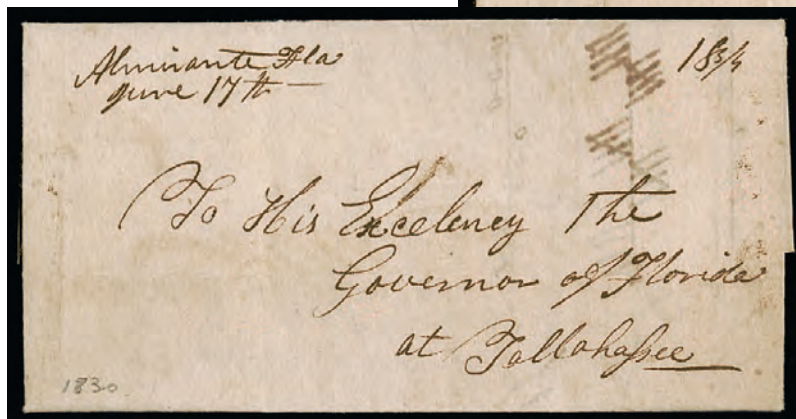 Almirante Fla
June 17th
18¾
To His Excelency The
Governor of Florida
at Tallahassee
1830